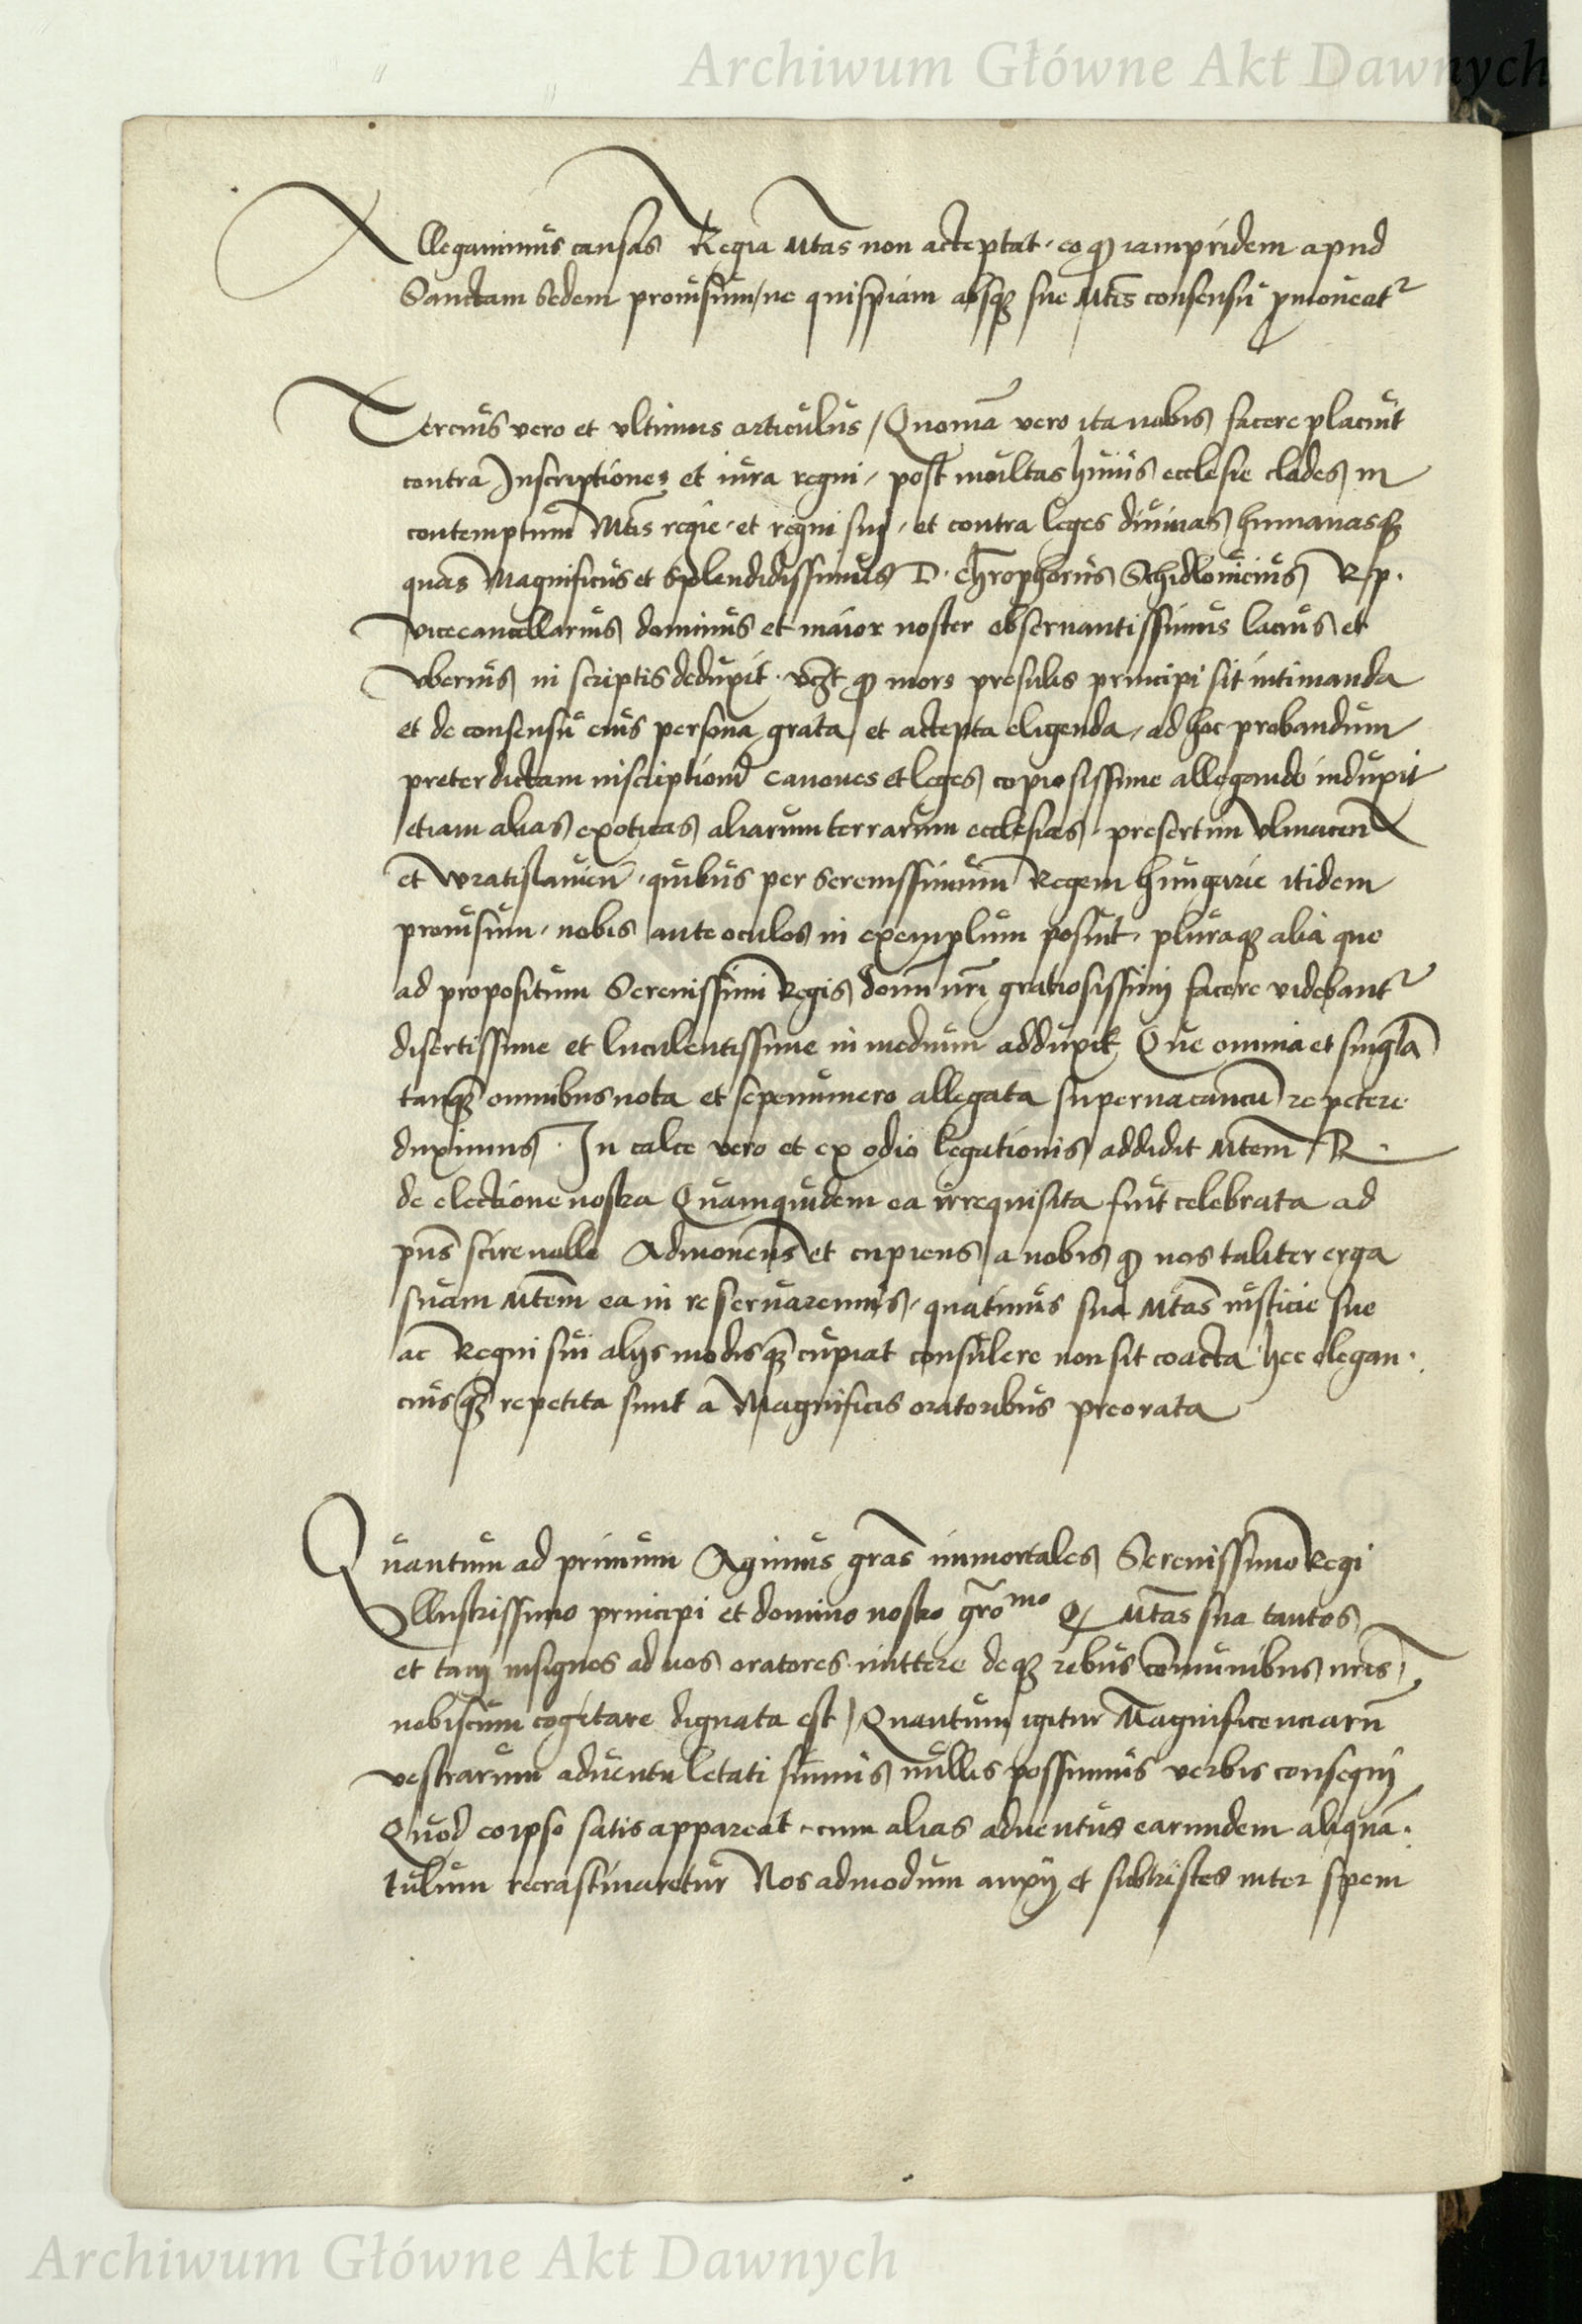 Archiwum Główne Akt Dawnych
Allegauimus causas Regia Mtas non acceptat eo qd iampridem apud
Sanctam Sedem prouisum / ne quispiam absqz sue Mtis consensu pmoueatr
Tercius vero et vltimus articulus / Quoniā vero ita nobis facere placuit
contra Inscriptionez et iura regni / post multas huius ecclesie clades in
contemptum Mtis regie et regni sui et contra leges diuinas humanasqz
quas Magnificus et Splendidissimus D. Chrophorus Schidlouicius R. p.
vicecancellarius dominus et maior noster obseruantissimus lacius et
vberius in scriptis deduxit vczt qd mors presulis principi sit intimanda
et de consensu eius persona grata et accepta eligenda ad hoc probandum
preter dictam inscriptionē canones et leges copiosissime allegando induxit
etiam alias exoticas aliarum terrarum ecclesias presertim Vlmucen
et Wratislauien quibus per Serenissimum Regem Hungarie itidem
prouisum nobis ante oculos in exemplum posuit pluraqz alia que
ad propositum Serenissimi Regis domi nri gratiosissimi facere videbantr
disertissime et luculentissime in medium adduxit Que omnia et singla
tanqz omnibus nota et sepenumero allegata superuacaneū repetere
duximus In calce vero et ex odio legationis addidit Mtem R.
de electione nostra Quamquidem ea irrequisita fuit celebrata ad
pns scire nolle Admonens et cupiens a nobis qd nos taliter erga
suam Mtem ea in re seruaremus quatinus sua Mtas iusticie sue
ac Regni sui alijs modis qz cupiat consulere non sit coacta hec elegan
cius qz repetita sunt a Magnificis oratoribus preorata
Quantum ad primum Agimus gras immortales Serenissimo Regi
Illustrissimo principi et domino nostro gro mo q Mtas sua tantos
et tam insignes ad nos oratores mittere deqz rebus comunibus nris
nobiscum cogitare dignata est / Quantum igitur Magnificenciaru
vestrarum aduentu letati sumus nullis possumus verbis consequi
Quod eoipso satis appareat cum alias aduentus earundem aliquā
tulum recrastinaretur Nos admodum anxij et subtristes inter spem
Archiwum Główne Akt Dawnych